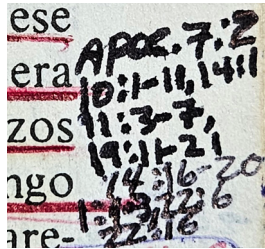 ese
era
zos
ngo
are-
APOC. 7:2
10:1-11, 14:1
11:3-7,
19:11-21
14:16-20
22:6
22:16